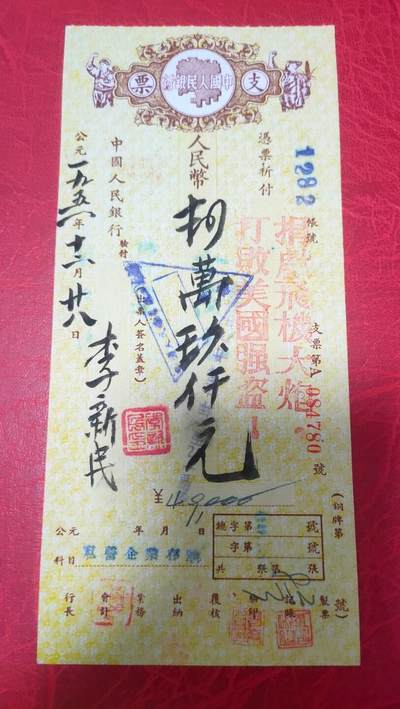 支票
中國人民銀行
帳號
支票第A 084780 號
(銅牌第 號)
憑票祈付
捐獻飛機大炮!
打敗美國强盜!
人民幣 肆萬玖仟元
¥49,000
中國人民銀行
驗付
(出票人簽名蓋章)
李新民
公元一九五 年 月廿八日
總字第 號
字第 號
共 張
公元 年 月 日
科目 私營企業存款
行長 會計 業務 出納 覆核 驗印 記賬 製票